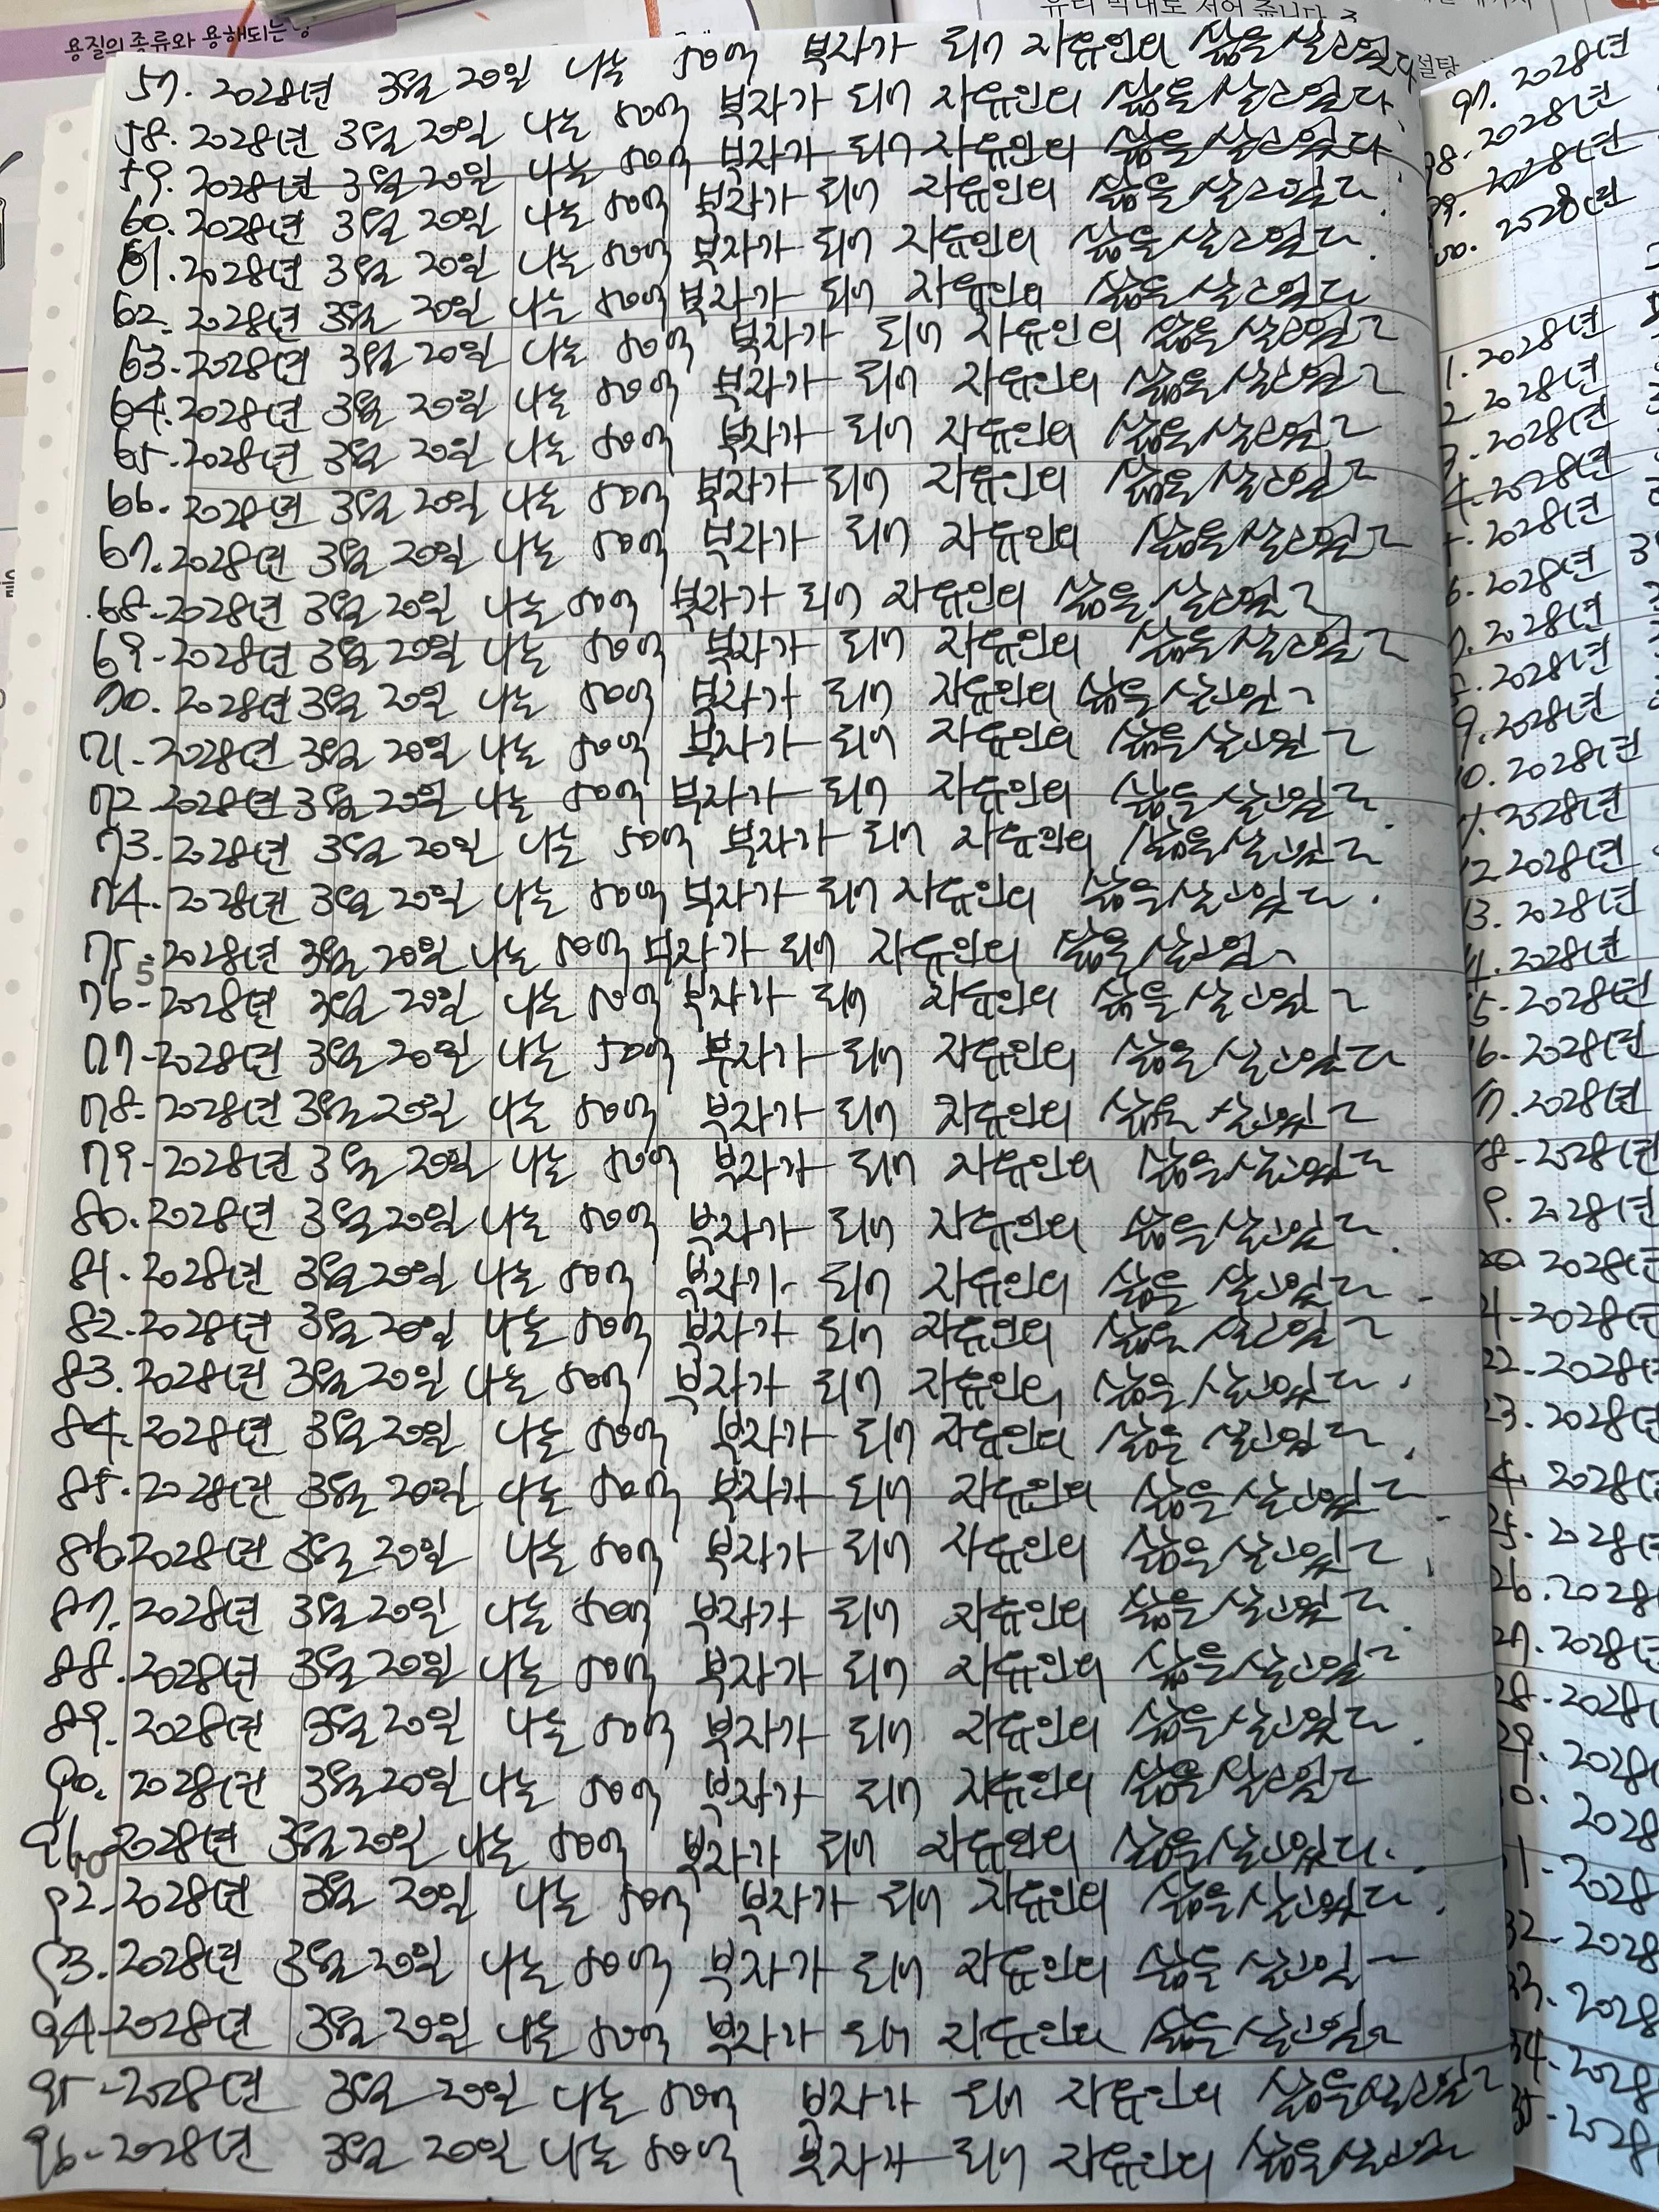 용질의 종류와 용해되는 양
설탕
57. 2028년 3월 20일 나는 50억 부자가 되어 자유인의 삶을 살고있다.
58. 2028년 3월 20일 나는 50억 부자가 되어 자유인의 삶을 살고있다.
59. 2028년 3월 20일 나는 50억 부자가 되어 자유인의 삶을 살고있다.
60. 2028년 3월 20일 나는 50억 부자가 되어 자유인의 삶을 살고있다.
61. 2028년 3월 20일 나는 50억 부자가 되어 자유인의 삶을 살고있다.
62. 2028년 3월 20일 나는 50억 부자가 되어 자유인의 삶을 살고있다
63. 2028년 3월 20일 나는 50억 부자가 되어 자유인의 삶을 살고있다
64. 2028년 3월 20일 나는 50억 부자가 되어 자유인의 삶을 살고있다
65. 2028년 3월 20일 나는 50억 부자가 되어 자유인의 삶을 살고있다
66. 2028년 3월 20일 나는 50억 부자가 되어 자유인의 삶을 살고있다
67. 2028년 3월 20일 나는 50억 부자가 되어 자유인의 삶을 살고있다
68. 2028년 3월 20일 나는 50억 부자가 되어 자유인의 삶을 살고있다
69. 2028년 3월 20일 나는 50억 부자가 되어 자유인의 삶을 살고있다
70. 2028년 3월 20일 나는 50억 부자가 되어 자유인의 삶을 살고있다
71. 2028년 3월 20일 나는 50억 부자가 되어 자유인의 삶을 살고있다
72. 2028년 3월 20일 나는 50억 부자가 되어 자유인의 삶을 살고있다.
73. 2028년 3월 20일 나는 50억 부자가 되어 자유인의 삶을 살고있다
74. 2028년 3월 20일 나는 50억 부자가 되어 자유인의 삶을 살고있다.
75. 2028년 3월 20일 나는 50억 부자가 되어 자유인의 삶을 살고있다
5
76. 2028년 3월 20일 나는 50억 부자가 되어 자유인의 삶을 살고있다
77. 2028년 3월 20일 나는 50억 부자가 되어 자유인의 삶을 살고있다
78. 2028년 3월 20일 나는 50억 부자가 되어 자유인의 삶을 살고있다
79. 2028년 3월 20일 나는 50억 부자가 되어 자유인의 삶을 살고있다
80. 2028년 3월 20일 나는 50억 부자가 되어 자유인의 삶을 살고있다.
81. 2028년 3월 20일 나는 50억 부자가 되어 자유인의 삶을 살고있다.
82. 2028년 3월 20일 나는 50억 부자가 되어 자유인의 삶을 살고있다
83. 2028년 3월 20일 나는 50억 부자가 되어 자유인의 삶을 살고있다.
84. 2028년 3월 20일 나는 50억 부자가 되어 자유인의 삶을 살고있다.
85. 2028년 3월 20일 나는 50억 부자가 되어 자유인의 삶을 살고있다.
86. 2028년 3월 20일 나는 50억 부자가 되어 자유인의 삶을 살고있다.
87. 2028년 3월 20일 나는 50억 부자가 되어 자유인의 삶을 살고있다.
88. 2028년 3월 20일 나는 50억 부자가 되어 자유인의 삶을 살고있다
89. 2028년 3월 20일 나는 50억 부자가 되어 자유인의 삶을 살고있다.
90. 2028년 3월 20일 나는 50억 부자가 되어 자유인의 삶을 살고있다
91. 2028년 3월 20일 나는 50억 부자가 되어 자유인의 삶을 살고있다.
10
92. 2028년 3월 20일 나는 50억 부자가 되어 자유인의 삶을 살고있다.
93. 2028년 3월 20일 나는 50억 부자가 되어 자유인의 삶을 살고있다
94. 2028년 3월 20일 나는 50억 부자가 되어 자유인의 삶을 살고있다
95. 2028년 3월 20일 나는 50억 부자가 되어 자유인의 삶을 살고있다
96. 2028년 3월 20일 나는 50억 부자가 되어 자유인의 삶을 살고있다
97. 2028년
98. 2028년
99. 2028년
100. 2028년
1. 2028년
2. 2028년
3. 2028년
4. 2028년
5. 2028년
6. 2028년
7. 2028년
8. 2028년
9. 2028년
10. 2028년
11. 2028년
12. 2028년
13. 2028년
14. 2028년
15. 2028년
16. 2028년
17. 2028년
18. 2028년
19. 2028년
20. 2028년
21. 2028년
22. 2028년
23. 2028년
24. 2028년
25. 2028년
26. 2028
27. 2028년
28. 2028
29. 2028
30. 2028
31. 2028
32. 2028
33. 2028
34. 2028
35. 2028